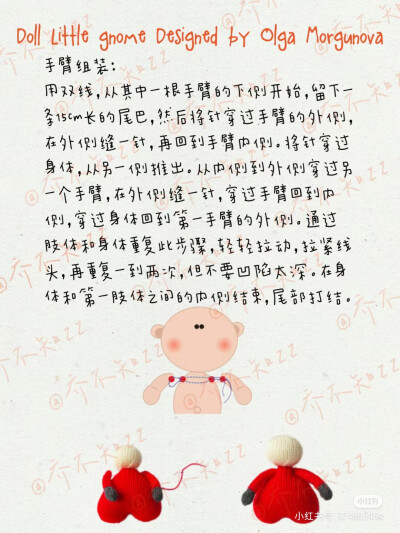 Doll Little gnome Designed by Olga Morgunova
手臂组装：
用双线，从其中一根手臂的下侧开始，留下一
条15cm长的尾巴，然后将针穿过手臂的外侧，
在外侧缝一针，再回到手臂内侧。将针穿过
身体，从另一侧推出。从内侧到外侧穿过另
一个手臂，在外侧缝一针，穿过手臂回到内
侧，穿过身体回到第一手臂的外侧。通过
肢体和身体重复此步骤，轻轻拉动，拉紧线
头，再重复一到两次，但不要凹陷太深。在身
体和第一肢体之间的内侧结束，尾部打结。
小红书